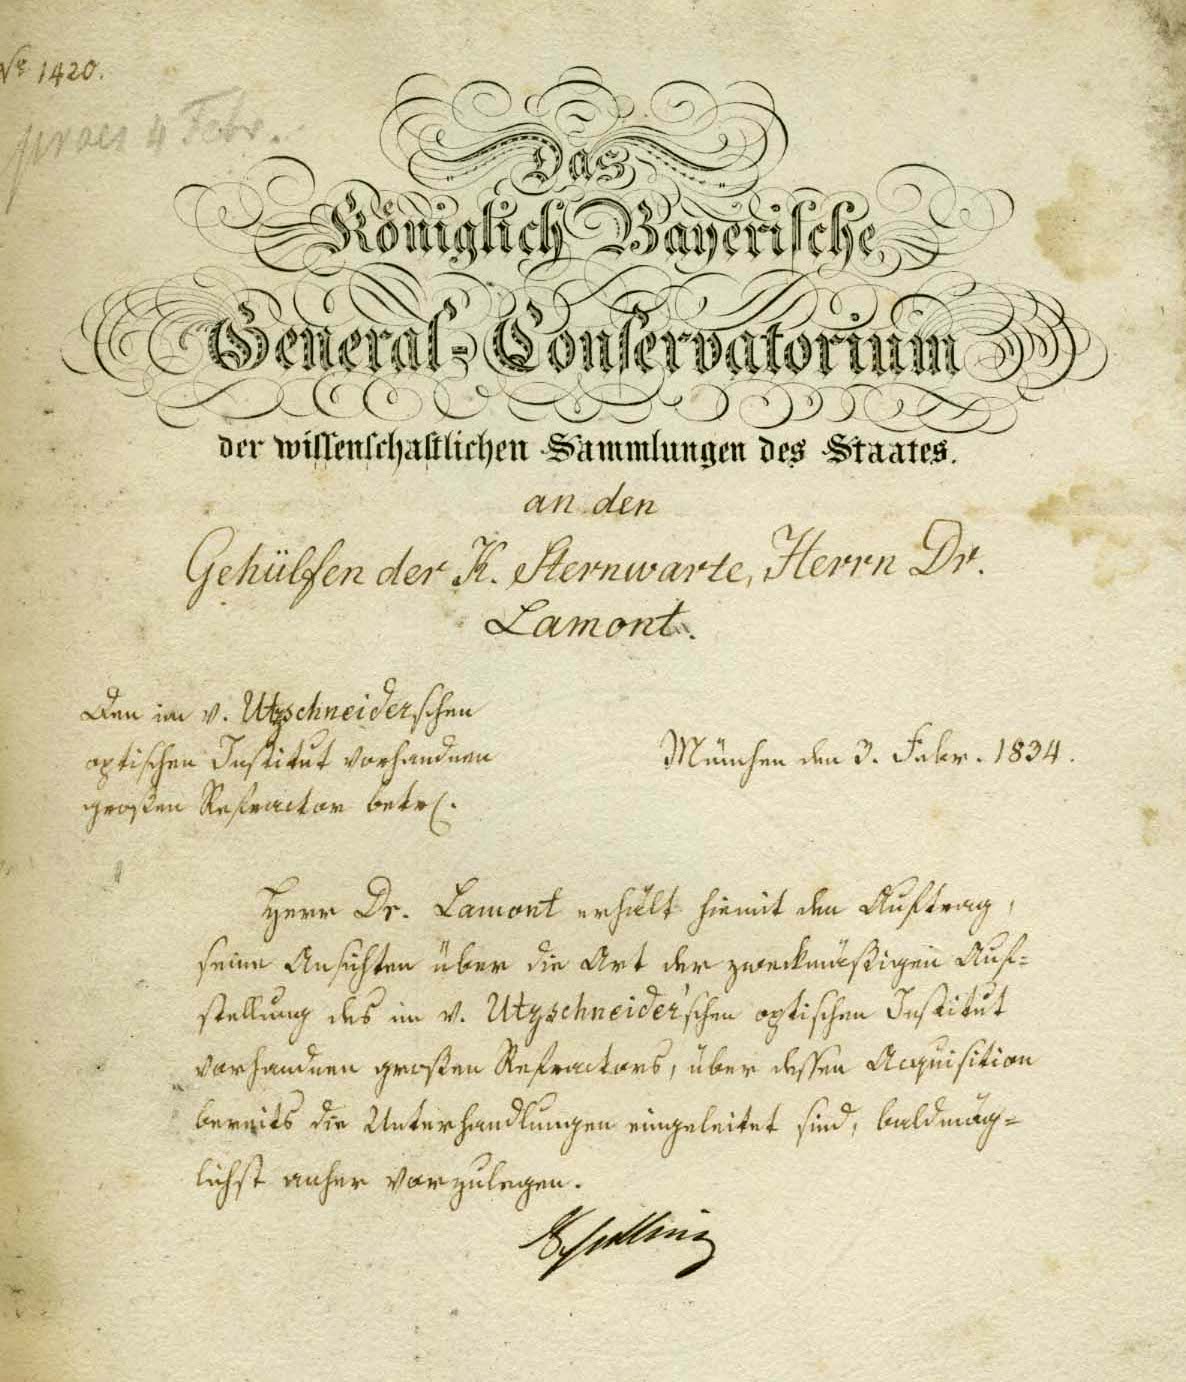 Nº 1420.
praes 4 Febr.
Das
Königlich Bayerische
General-Conservatorium
der wissenschaftlichen Sammlungen des Staates.
an den
Gehülfen der K. Sternwarte, Herrn Dr.
Lamont.
Den im v. Utzschneiderschen
optischen Institut vorhandnen
großen Refractor betr.
München den 3. Febr. 1834.
Herr Dr. Lamont erhält hiemit den Auftrag,
seine Ansichten über die Art der zweckmäßigen Auf=
stellung des im v. Utzschneider'schen optischen Institut
vorhandnen großen Refractors, über dessen Acquisition
bereits die Unterhandlungen eingeleitet sind, baldmög=
lichst anher vorzulegen.
Schelling